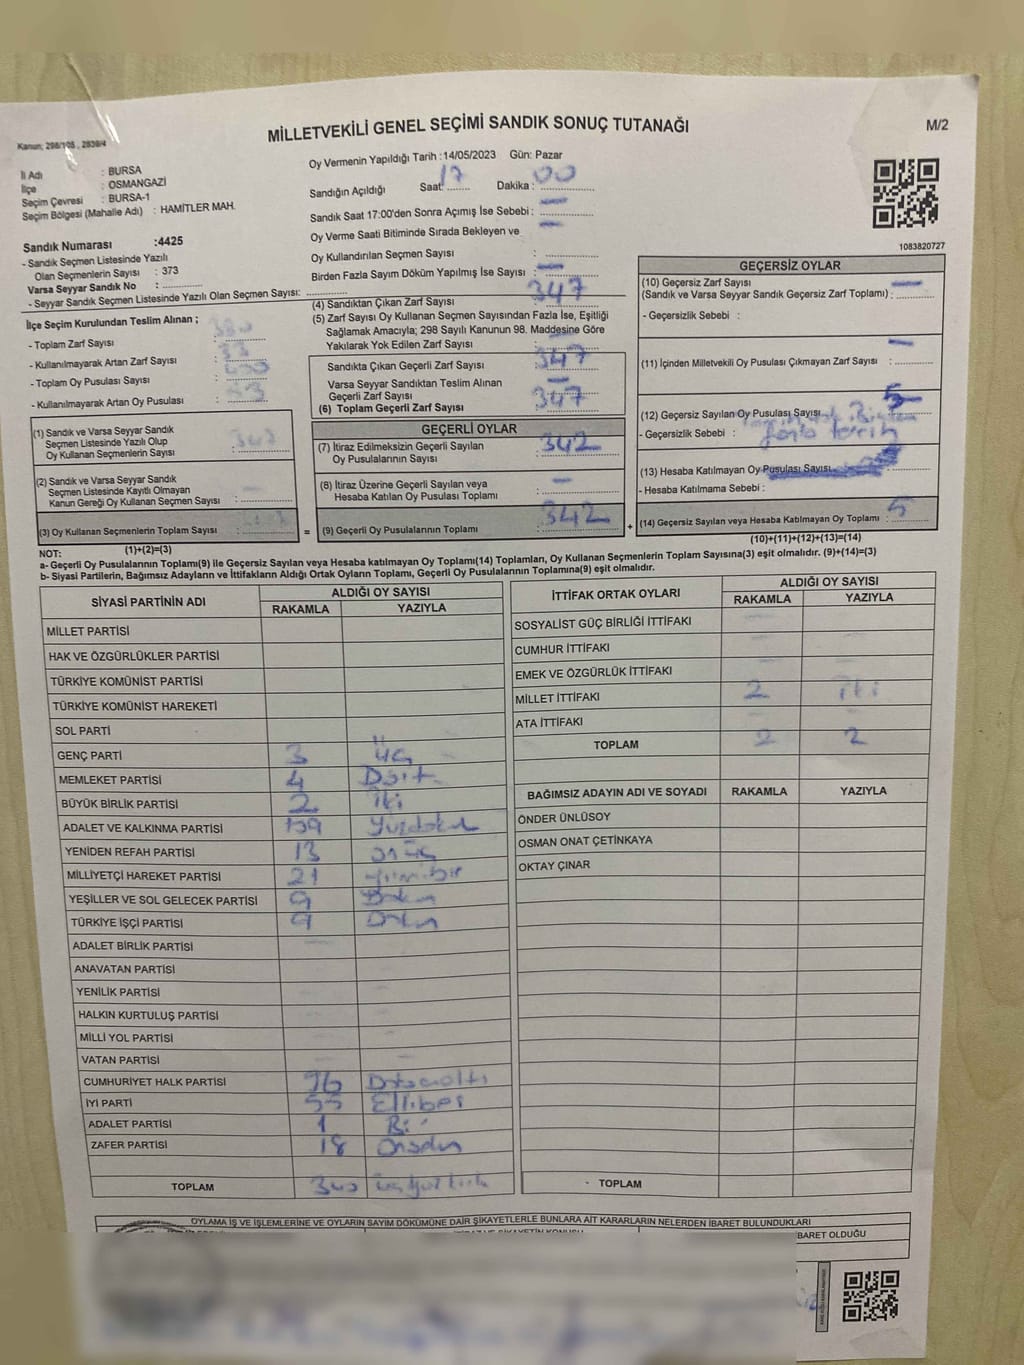 MİLLETVEKİLİ GENEL SEÇİMİ SANDIK SONUÇ TUTANAĞI
M/2
Kanun; 298/105 , 2839/4
İl Adı : BURSA
İlçe : OSMANGAZİ
Seçim Çevresi : BURSA-1
Seçim Bölgesi (Mahalle Adı) : HAMİTLER MAH.
Sandık Numarası :4425
- Sandık Seçmen Listesinde Yazılı
Olan Seçmenlerin Sayısı : 373
Varsa Seyyar Sandık No :
- Seyyar Sandık Seçmen Listesinde Yazılı Olan Seçmen Sayısı:
Oy Vermenin Yapıldığı Tarih :14/05/2023 Gün: Pazar
Sandığın Açıldığı Saat: 17 Dakika : 00
Sandık Saat 17:00'den Sonra Açımış İse Sebebi : -
Oy Verme Saati Bitiminde Sırada Bekleyen ve
Oy Kullandırılan Seçmen Sayısı : -
Birden Fazla Sayım Döküm Yapılmış İse Sayısı : -
1083820727
İlçe Seçim Kurulundan Teslim Alınan ;
- Toplam Zarf Sayısı : 380
- Kullanılmayarak Artan Zarf Sayısı : 33
- Toplam Oy Pusulası Sayısı :
- Kullanılmayarak Artan Oy Pusulası :
(1) Sandık ve Varsa Seyyar Sandık
Seçmen Listesinde Yazılı Olup
Oy Kullanan Seçmenlerin Sayısı : 347
(2) Sandık ve Varsa Seyyar Sandık
Seçmen Listesinde Kayıtlı Olmayan
Kanun Gereği Oy Kullanan Seçmen Sayısı : -
(3) Oy Kullanan Seçmenlerin Toplam Sayısı :
(1)+(2)=(3)
(4) Sandıktan Çıkan Zarf Sayısı : 347
(5) Zarf Sayısı Oy Kullanan Seçmen Sayısından Fazla İse, Eşitliği
Sağlamak Amacıyla; 298 Sayılı Kanunun 98. Maddesine Göre
Yakılarak Yok Edilen Zarf Sayısı : -
Sandıkta Çıkan Geçerli Zarf Sayısı : 347
Varsa Seyyar Sandıktan Teslim Alınan
Geçerli Zarf Sayısı : -
(6) Toplam Geçerli Zarf Sayısı : 347
GEÇERLİ OYLAR
(7) İtiraz Edilmeksizin Geçerli Sayılan
Oy Pusulalarının Sayısı : 342
(8) İtiraz Üzerine Geçerli Sayılan veya
Hesaba Katılan Oy Pusulası Toplamı : -
= (9) Geçerli Oy Pusulalarının Toplamı : 342 +
GEÇERSİZ OYLAR
(10) Geçersiz Zarf Sayısı
(Sandık ve Varsa Seyyar Sandık Geçersiz Zarf Toplamı) : -
- Geçersizlik Sebebi :
(11) İçinden Milletvekili Oy Pusulası Çıkmayan Zarf Sayısı : -
(12) Geçersiz Sayılan Oy Pusulası Sayısı : 5
- Geçersizlik Sebebi : fazla tercih
(13) Hesaba Katılmayan Oy Pusulası Sayısı
- Hesaba Katılmama Sebebi :
(14) Geçersiz Sayılan veya Hesaba Katılmayan Oy Toplamı : 5
(10)+(11)+(12)+(13)=(14)
NOT:
a- Geçerli Oy Pusulalarının Toplamı(9) ile Geçersiz Sayılan veya Hesaba katılmayan Oy Toplamı(14) Toplamları, Oy Kullanan Seçmenlerin Toplam Sayısına(3) eşit olmalıdır. (9)+(14)=(3)
b- Siyasi Partilerin, Bağımsız Adayların ve İttifakların Aldığı Ortak Oyların Toplamı, Geçerli Oy Pusulalarının Toplamına(9) eşit olmalıdır.
SİYASİ PARTİNİN ADI ALDIĞI OY SAYISI
RAKAMLA YAZIYLA
MİLLET PARTİSİ
HAK VE ÖZGÜRLÜKLER PARTİSİ
TÜRKİYE KOMÜNİST PARTİSİ
TÜRKİYE KOMÜNİST HAREKETİ
SOL PARTİ
GENÇ PARTİ 3 üç
MEMLEKET PARTİSİ 4 Dört
BÜYÜK BİRLİK PARTİSİ 2 iki
ADALET VE KALKINMA PARTİSİ 109 Yüzdokuz
YENİDEN REFAH PARTİSİ 13 onüç
MİLLİYETÇİ HAREKET PARTİSİ 21 yirmibir
YEŞİLLER VE SOL GELECEK PARTİSİ 9 Dokuz
TÜRKİYE İŞÇİ PARTİSİ 9 Dokuz
ADALET BİRLİK PARTİSİ -
ANAVATAN PARTİSİ
YENİLİK PARTİSİ
HALKIN KURTULUŞ PARTİSİ
MİLLİ YOL PARTİSİ
VATAN PARTİSİ
CUMHURİYET HALK PARTİSİ 96 Doksanaltı
İYİ PARTİ 55 Ellibeş
ADALET PARTİSİ 1 Bir
ZAFER PARTİSİ 18 Onsekiz
TOPLAM 340 üçyüzkırk
İTTİFAK ORTAK OYLARI ALDIĞI OY SAYISI
RAKAMLA YAZIYLA
SOSYALİST GÜÇ BİRLİĞİ İTTİFAKI
CUMHUR İTTİFAKI
EMEK VE ÖZGÜRLÜK İTTİFAKI
MİLLET İTTİFAKI 2 iki
ATA İTTİFAKI
TOPLAM 2 2
BAĞIMSIZ ADAYIN ADI VE SOYADI RAKAMLA YAZIYLA
ÖNDER ÜNLÜSOY
OSMAN ONAT ÇETİNKAYA
OKTAY ÇINAR
- TOPLAM
OYLAMA İŞ VE İŞLEMLERİNE VE OYLARIN SAYIM DÖKÜMÜNE DAİR ŞİKAYETLERLE BUNLARA AİT KARARLARIN NELERDEN İBARET BULUNDUKLARI
BARET OLDUĞU